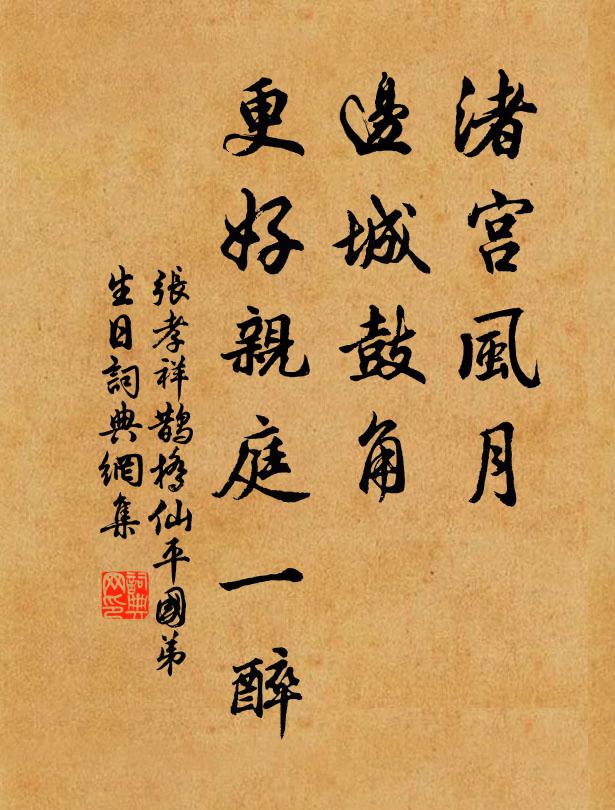 渚宮風月
邊城鼓角
更好親庭一醉
張孝祥鵲橋仙平國弟
生日詞典網集
詞典
网印